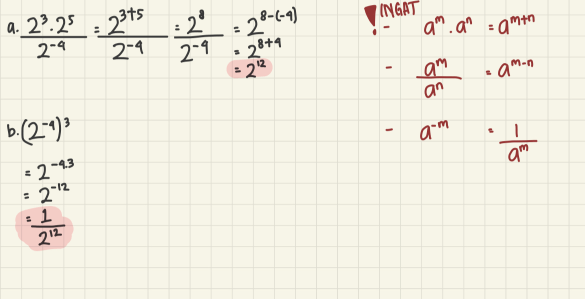 a. 2³ · 2⁵ / 2⁻⁴ = 2³⁺⁵ / 2⁻⁴ = 2⁸ / 2⁻⁴ = 2⁸⁻⁽⁻⁴⁾
= 2⁸⁺⁴
= 2¹²
b. (2⁻⁴)³
= 2⁻⁴·³
= 2⁻¹²
= 1 / 2¹²
! INGAT
- aᵐ · aⁿ = aᵐ⁺ⁿ
- aᵐ / aⁿ = aᵐ⁻ⁿ
- a⁻ᵐ = 1 / aᵐ